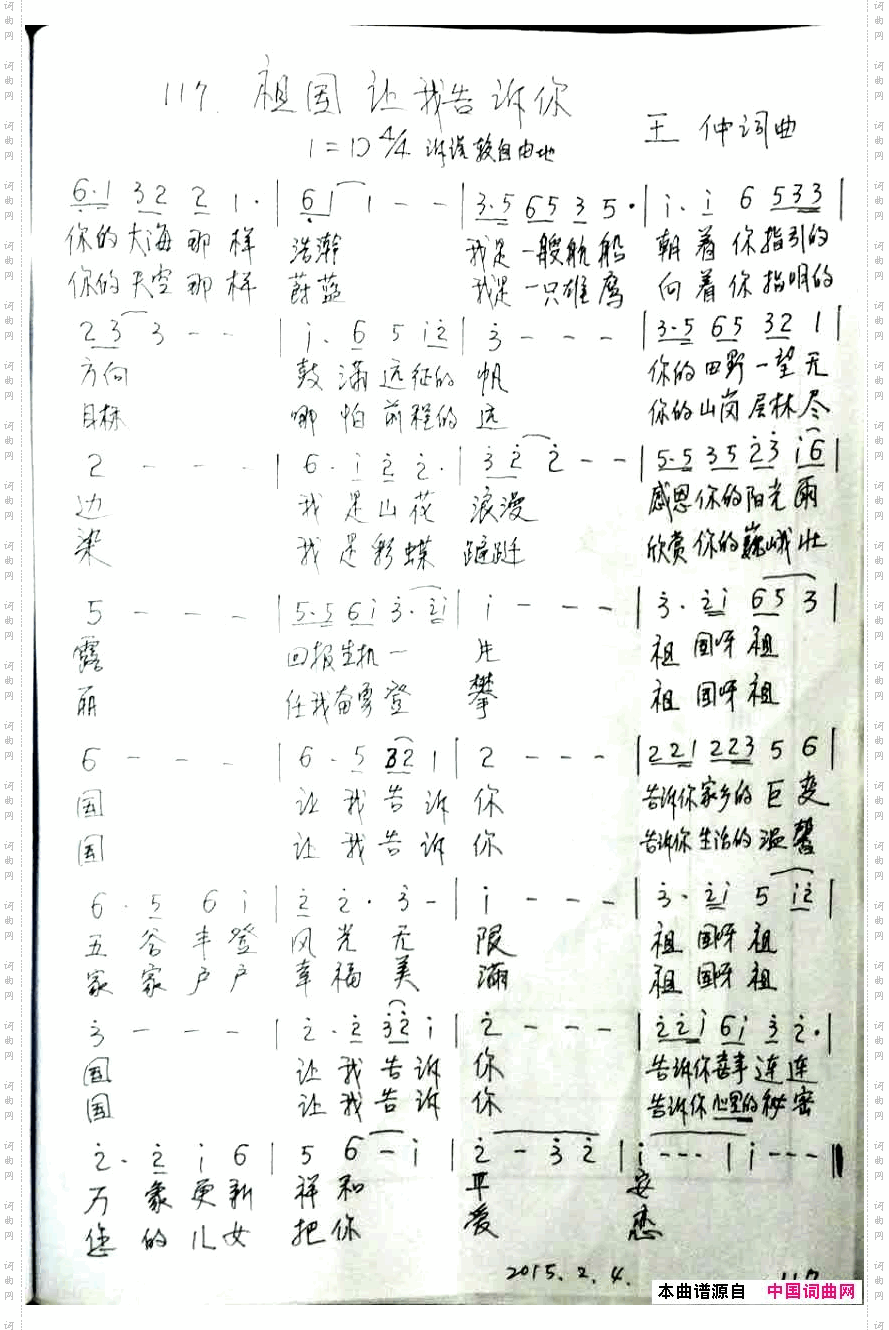 117. 祖国让我告诉你
1=D 4/4 诉说较自由地
王仲词曲
6·1 32 2 1· | 61 1 - - | 3·5 65 3 5· | i· i 6 533 |
你的大海那样 浩瀚 我是一艘航船 朝着你指引的
你的天空那样 蔚蓝 我是一只雄鹰 向着你指明的
23 3 - - | i· 6 5 i2 | 3 - - - | 3·5 65 32 1 |
方向 鼓满远征的 帆 你的田野一望无
目标 哪怕前程的 远 你的山岗层林尽
2 - - - | 6· i 2 2· | 32 2 - - | 5·5 35 23 i6 |
边 我是山花 浪漫 感恩你的阳光雨
染 我是彩蝶 蹁跹 欣赏你的巍峨壮
5 - - - | 5·5 6i 3· 2i | i - - - | 3· 2i 65 3 |
露 回报生机一 片 祖国呀祖
丽 任我奋勇登 攀 祖国呀祖
6 - - - | 6· 5 32 1 | 2 - - - | 221 223 5 6 |
国 让我告诉 你 告诉你家乡的巨变
国 让我告诉 你 告诉你生活的温馨
6· 5 6 i | 2 2· 3 - | i - - - | 3· 2i 5 i2 |
五谷丰登 风光无 限 祖国呀祖
家家户户 幸福美 满 祖国呀祖
3 - - - | 2· 2 32 i | 2 - - - | 22i 6i 3 2· |
国 让我告诉 你 告诉你喜事连连
国 让我告诉 你 告诉你心里的秘密
2· 2 i 6 | 5 6 - i | 2 - 3 2 | i - - - | i - - - ‖
万象更新 祥和 平 安
您的儿女 把你 爱 恋
2015.2.4.
117
本曲谱源自 中国词曲网